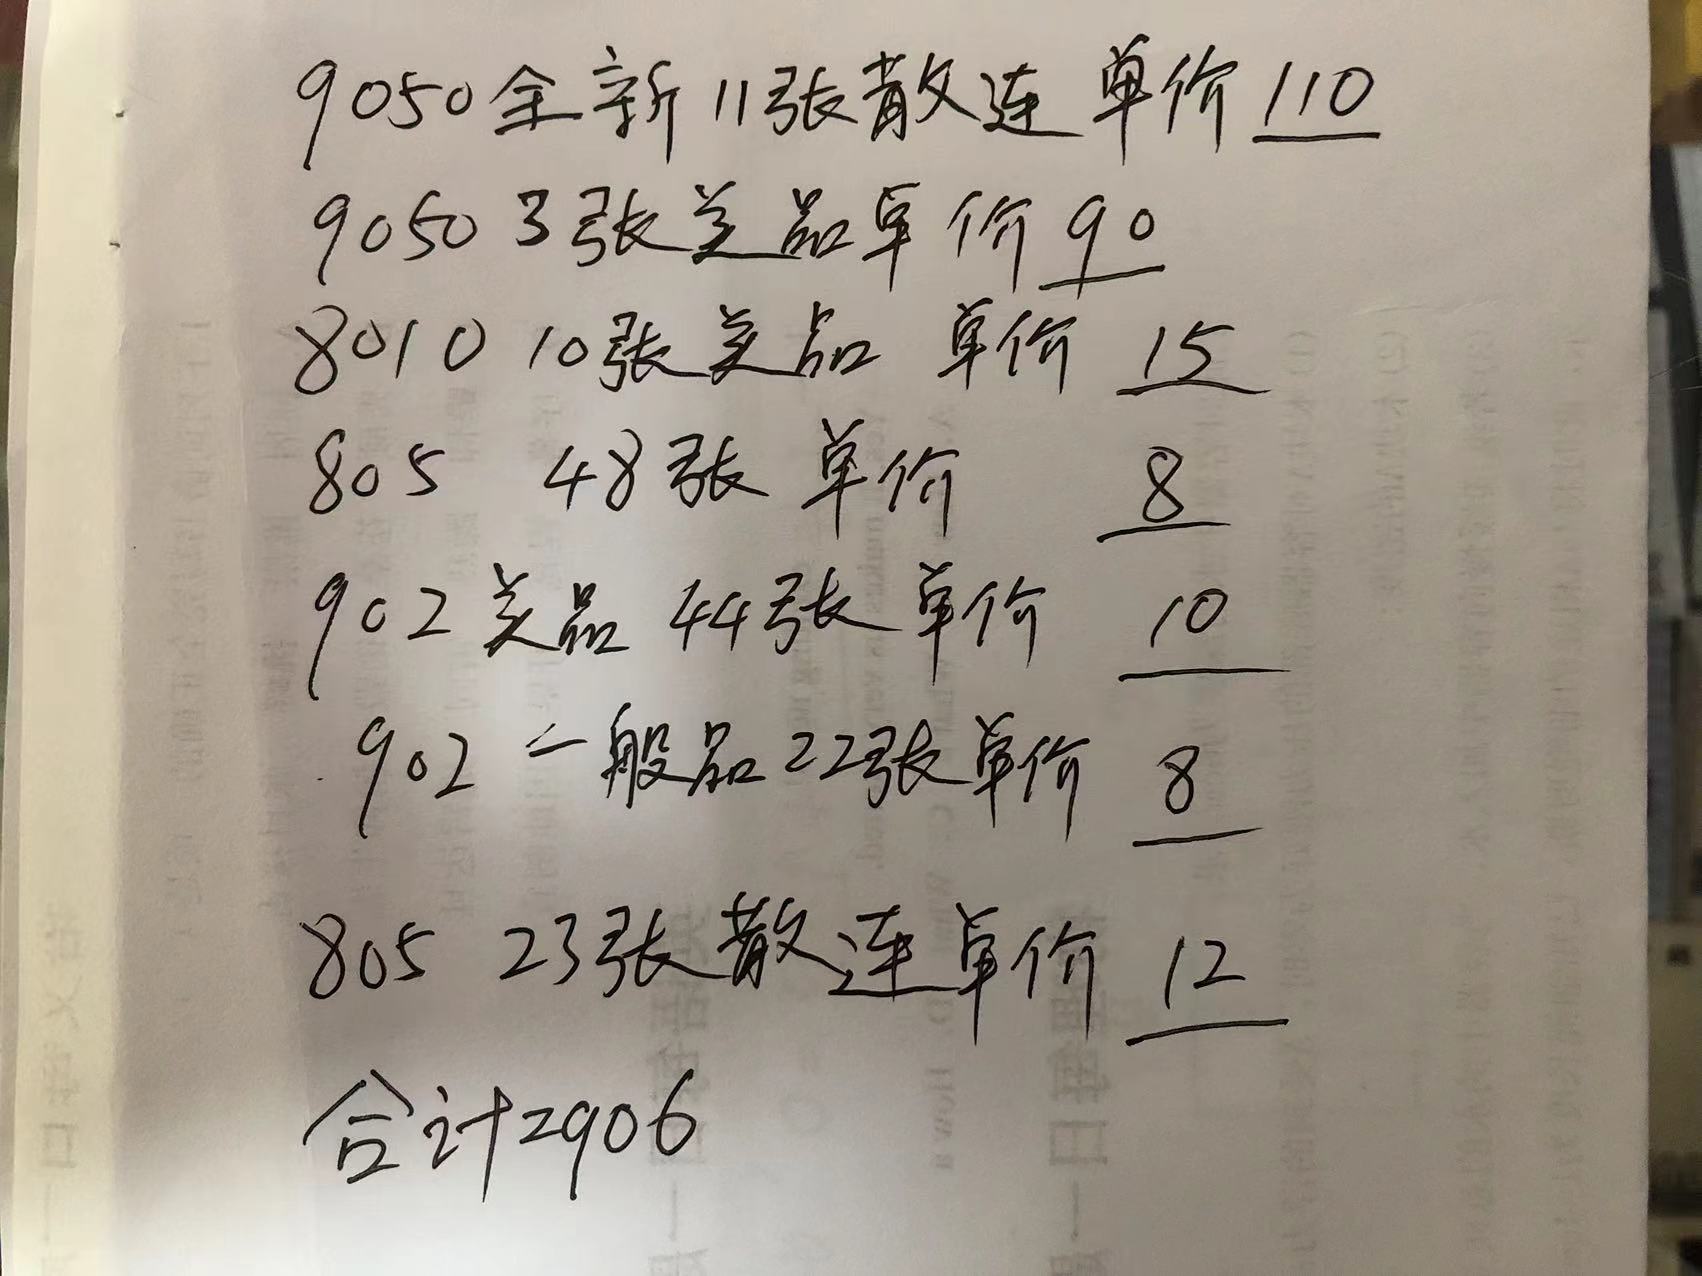 9050全新11张散连单价110
9050 3张美品单价90
8010 10张美品 单价 15
805 48张 单价 8
902美品 44张单价 10
902 一般品22张单价 8
805 23张散连单价 12
合计2906